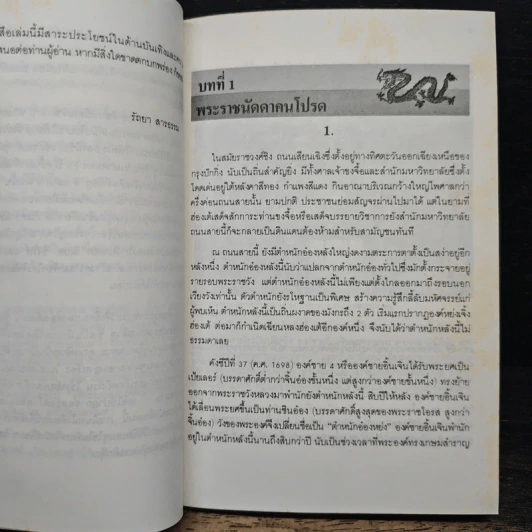 สือเล่มนี้มีสาระประโยชน์ในด้านบันเทิงและคว
นอต่อท่านผู้อ่าน หากมีสิ่งใดขาดตกบกพร่อง
รัถยา สารธรรม
บทที่ 1
พระราชนัดดาคนโปรด
1.
ในสมัยราชวงศ์ชิง ถนนเลียนเฉิงซึ่งตั้งอยู่ทางทิศตะวันออกเฉียงเหนือของ
กรุงปักกิ่ง นับเป็นถิ่นสำคัญยิ่ง มีทั้งศาลเจ้าขงจื้อและสำนักมหาวิทยาลัยซึ่งตั้ง
โดดเด่นอยู่ใต้หลังคาสีทอง กำแพงสีแดง กินอาณาบริเวณกว้างใหญ่ไพศาลกว่า
ครึ่งค่อนถนนสายนั้น ยามปกติ ประชาชนย่อมสัญจรผ่านไปมาได้ แต่ในยามที่
ฮ่องเต้เสด็จสักการะท่านขงจื้อหรือเสด็จบรรยายวิชาการยังสำนักมหาวิทยาลัย
ถนนสายนี้ก็จะกลายเป็นดินแดนต้องห้ามสำหรับสามัญชนทันที
ณ ถนนสายนี้ ยังมีตำหนักอ๋องหลังใหญ่งดงามตระการตาตั้งเป็นสง่าอยู่อีก
หลังหนึ่ง ตำหนักอ๋องหลังนี้นับว่าแปลกจากตำหนักอ๋องทั่วไปซึ่งมักตั้งกระจายอยู่
รายรอบพระราชวัง แต่ตำหนักอ๋องหลังนี้ไม่เพียงแต่ตั้งไกลออกมาถึงรอบนอก
เวียงวังเท่านั้น ตัวตำหนักยังรโหฐานเป็นพิเศษ สร้างความรู้สึกลี้ลับมหัศจรรย์แก่
ผู้พบเห็น ตำหนักหลังนี้เป็นถิ่นผงาดของมังกรถึง 2 ตัว เริ่มแรกปรากฏองค์หย่งเจิ้ง
ฮ่องเต้ ต่อมาก็กำเนิดเฉียนหลงฮ่องเต้อีกองค์หนึ่ง จึงนับได้ว่าตำหนักหลังนี้ไม่
ธรรมดาเลย
คังซีปีที่ 37 (ค.ศ. 1698) องค์ชาย 4 หรือองค์ชายอิ้นเจินได้รับพระยศเป็น
เป้ยเลอร์ (บรรดาศักดิ์ต่ำกว่าจิ้นอ๋องชั้นหนึ่ง แต่สูงกว่าองค์ชายชั้นหนึ่ง) ทรงย้าย
ออกจากพระราชวังหลวงมาพำนักยังตำหนักหลังนี้ สิบปีให้หลัง องค์ชายอิ้นเจิน
ได้เลื่อนพระยศขึ้นเป็นท่านชินอ๋อง (บรรดาศักดิ์สูงสุดของพระราชโอรส สูงกว่า
จิ้นอ๋อง) วังของพระองค์จึงเปลี่ยนชื่อเป็น "ตำหนักอ๋องหย่ง" องค์ชายอิ้นเจินพำนัก
อยู่ในตำหนักหลังนี้นานถึงสิบกว่าปี นับเป็นช่วงเวลาที่พระองค์ทรงเกษมสำราญ